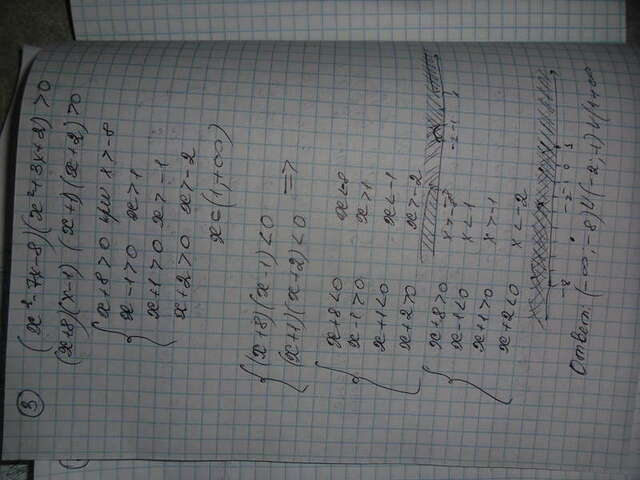 3 (x² - 7x - 8)(x² + 3x + 2) > 0
(x+8)(x-1) (x+1)(x+2) > 0
x+8>0 при x>-8
x-1>0 x>1
x+1>0 x>-1
x+2>0 x>-2
x∈(1,+∞)
(x+8)(x-1)<0
(x+1)(x+2)<0 =>
x+8<0 x<-8
x-1>0 x>1
x+1<0 x<-1
x+2>0 x>-2
-2 -1 1
x+8>0 x>-8
x-1<0 x<1
x+1>0 x>-1
x+2<0 x<-2
-8 -2 -1 0 1
Ответ: (-∞;-8)∪(-2;-1)∪(1+∞